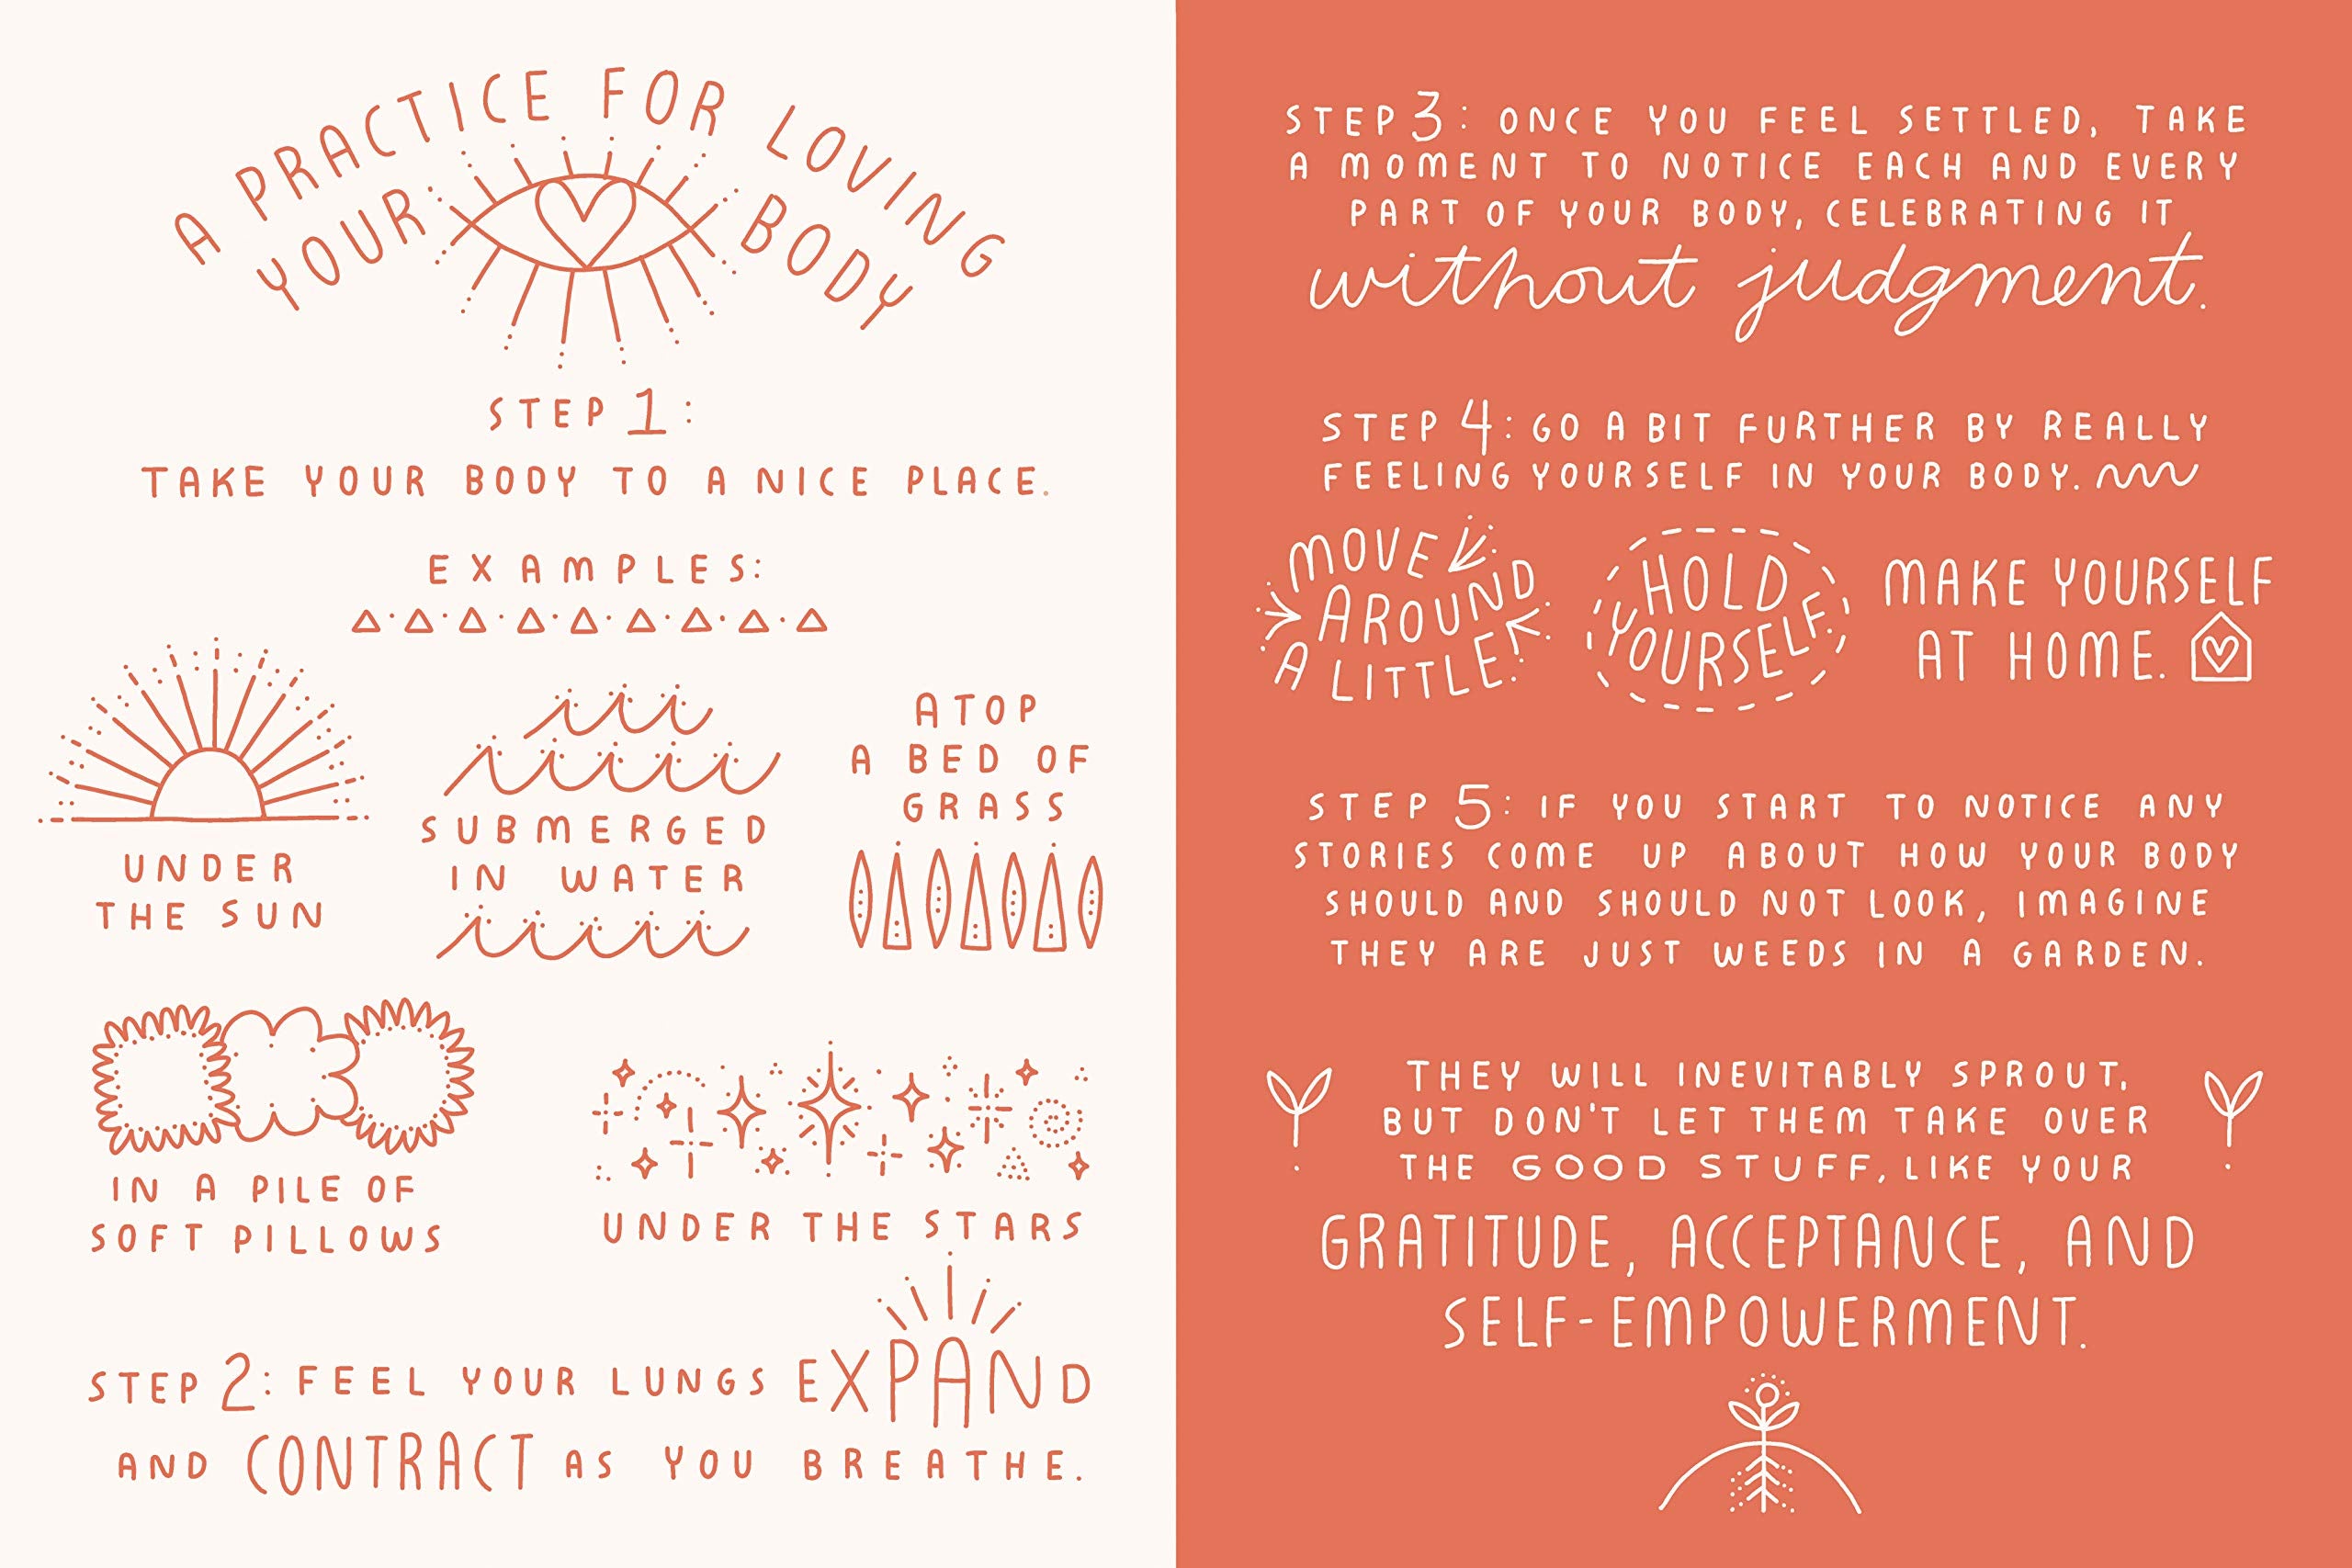 A PRACTICE FOR LOVING
YOUR BODY
STEP 1:
TAKE YOUR BODY TO A NICE PLACE.
EXAMPLES:
UNDER
THE SUN
SUBMERGED
IN WATER
ATOP
A BED OF
GRASS
IN A PILE OF
SOFT PILLOWS
UNDER THE STARS
STEP 2: FEEL YOUR LUNGS EXPAND
AND CONTRACT AS YOU BREATHE.
STEP 3: ONCE YOU FEEL SETTLED, TAKE
A MOMENT TO NOTICE EACH AND EVERY
PART OF YOUR BODY, CELEBRATING IT
without judgment.
STEP 4: GO A BIT FURTHER BY REALLY
FEELING YOURSELF IN YOUR BODY.
MOVE
AROUND
A LITTLE.
HOLD
YOURSELF.
MAKE YOURSELF
AT HOME.
STEP 5: IF YOU START TO NOTICE ANY
STORIES COME UP ABOUT HOW YOUR BODY
SHOULD AND SHOULD NOT LOOK, IMAGINE
THEY ARE JUST WEEDS IN A GARDEN.
THEY WILL INEVITABLY SPROUT,
BUT DON'T LET THEM TAKE OVER
THE GOOD STUFF, LIKE YOUR
GRATITUDE, ACCEPTANCE, AND
SELF-EMPOWERMENT.